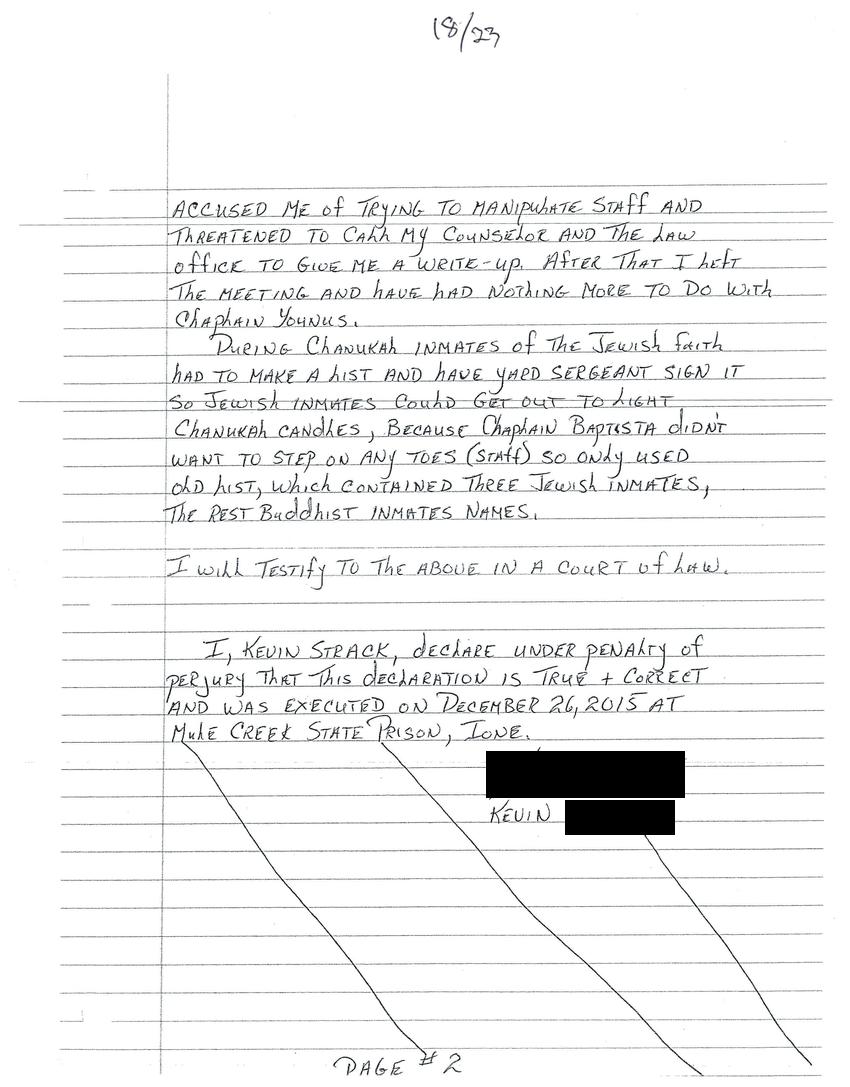 18/23
ACCUSED ME of TRYING TO MANIPULATE STAFF AND
THREATENED TO CALL MY COUNSELOR AND THE LAW
office TO GIVE ME A WRITE-up. AFTER THAT I LEFT
THE MEETING AND HAVE HAD NOTHING MORE TO DO WITH
CHAPLAIN YOUNUS.
DURING CHANUKAH INMATES of THE JEWISH FAITH
HAD TO MAKE A LIST AND HAVE YARD SERGEANT SIGN IT
SO JEWISH INMATES COULD GET OUT TO LIGHT
CHANUKAH CANDLES, BECAUSE CHAPLAIN BAPTISTA didN'T
WANT TO STEP ON ANY TOES (STAFF) SO ONLY USED
OLD LIST, WHICH CONTAINED THREE JEWISH INMATES,
THE REST BUDDHIST INMATES NAMES.
I WILL TESTIFY TO THE ABOVE IN A COURT of LAW.
I, KEVIN STRACK, dECLARE UNDER PENALTY of
PERJURY THAT THIS dECLARATION IS TRUE + CORRECT
AND WAS EXECUTED ON DECEMBER 26, 2015 AT
MULE CREEK STATE PRISON, IONE.
KEVIN
PAGE # 2